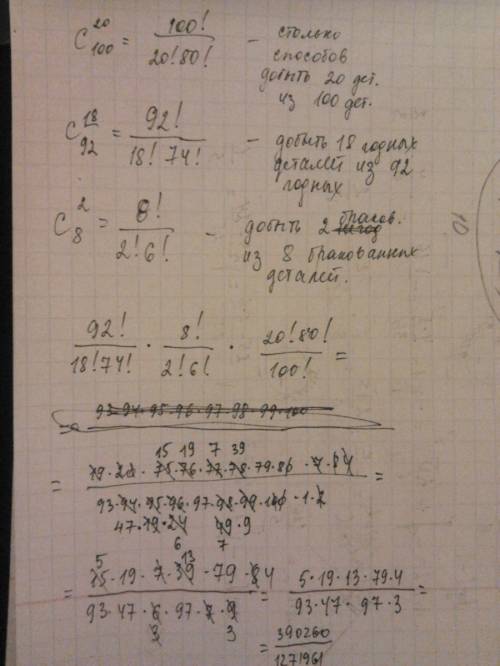 C²⁰₁₀₀ = 100! / 20!80! – столько
способов
добыть 20 дет.
из 100 дет.
C¹⁸₉₂ = 92! / 18! 74! – добыть 18 годных
деталей из 92
годных
C²₈ = 8! / 2!6! – добыть 2 браков.
из 8 бракованных
деталей.
92! / 18!74! · 8! / 2!6! · 20!80! / 100! =
93·94·95·96·97·98·99·100
15 19 7 39
= 19·20·75·76·77·78·79·80·7·8 / 93·94·95·96·97·98·99·100·1·2 =
47·19·24 49·9
6 7
5 13
= 15·19·7·39·79·8 4 / 93·47·6·97·7·9 = 5·19·13·79·4 / 93·47·97·3 =
3 3
= 390260 / 1271961
10.